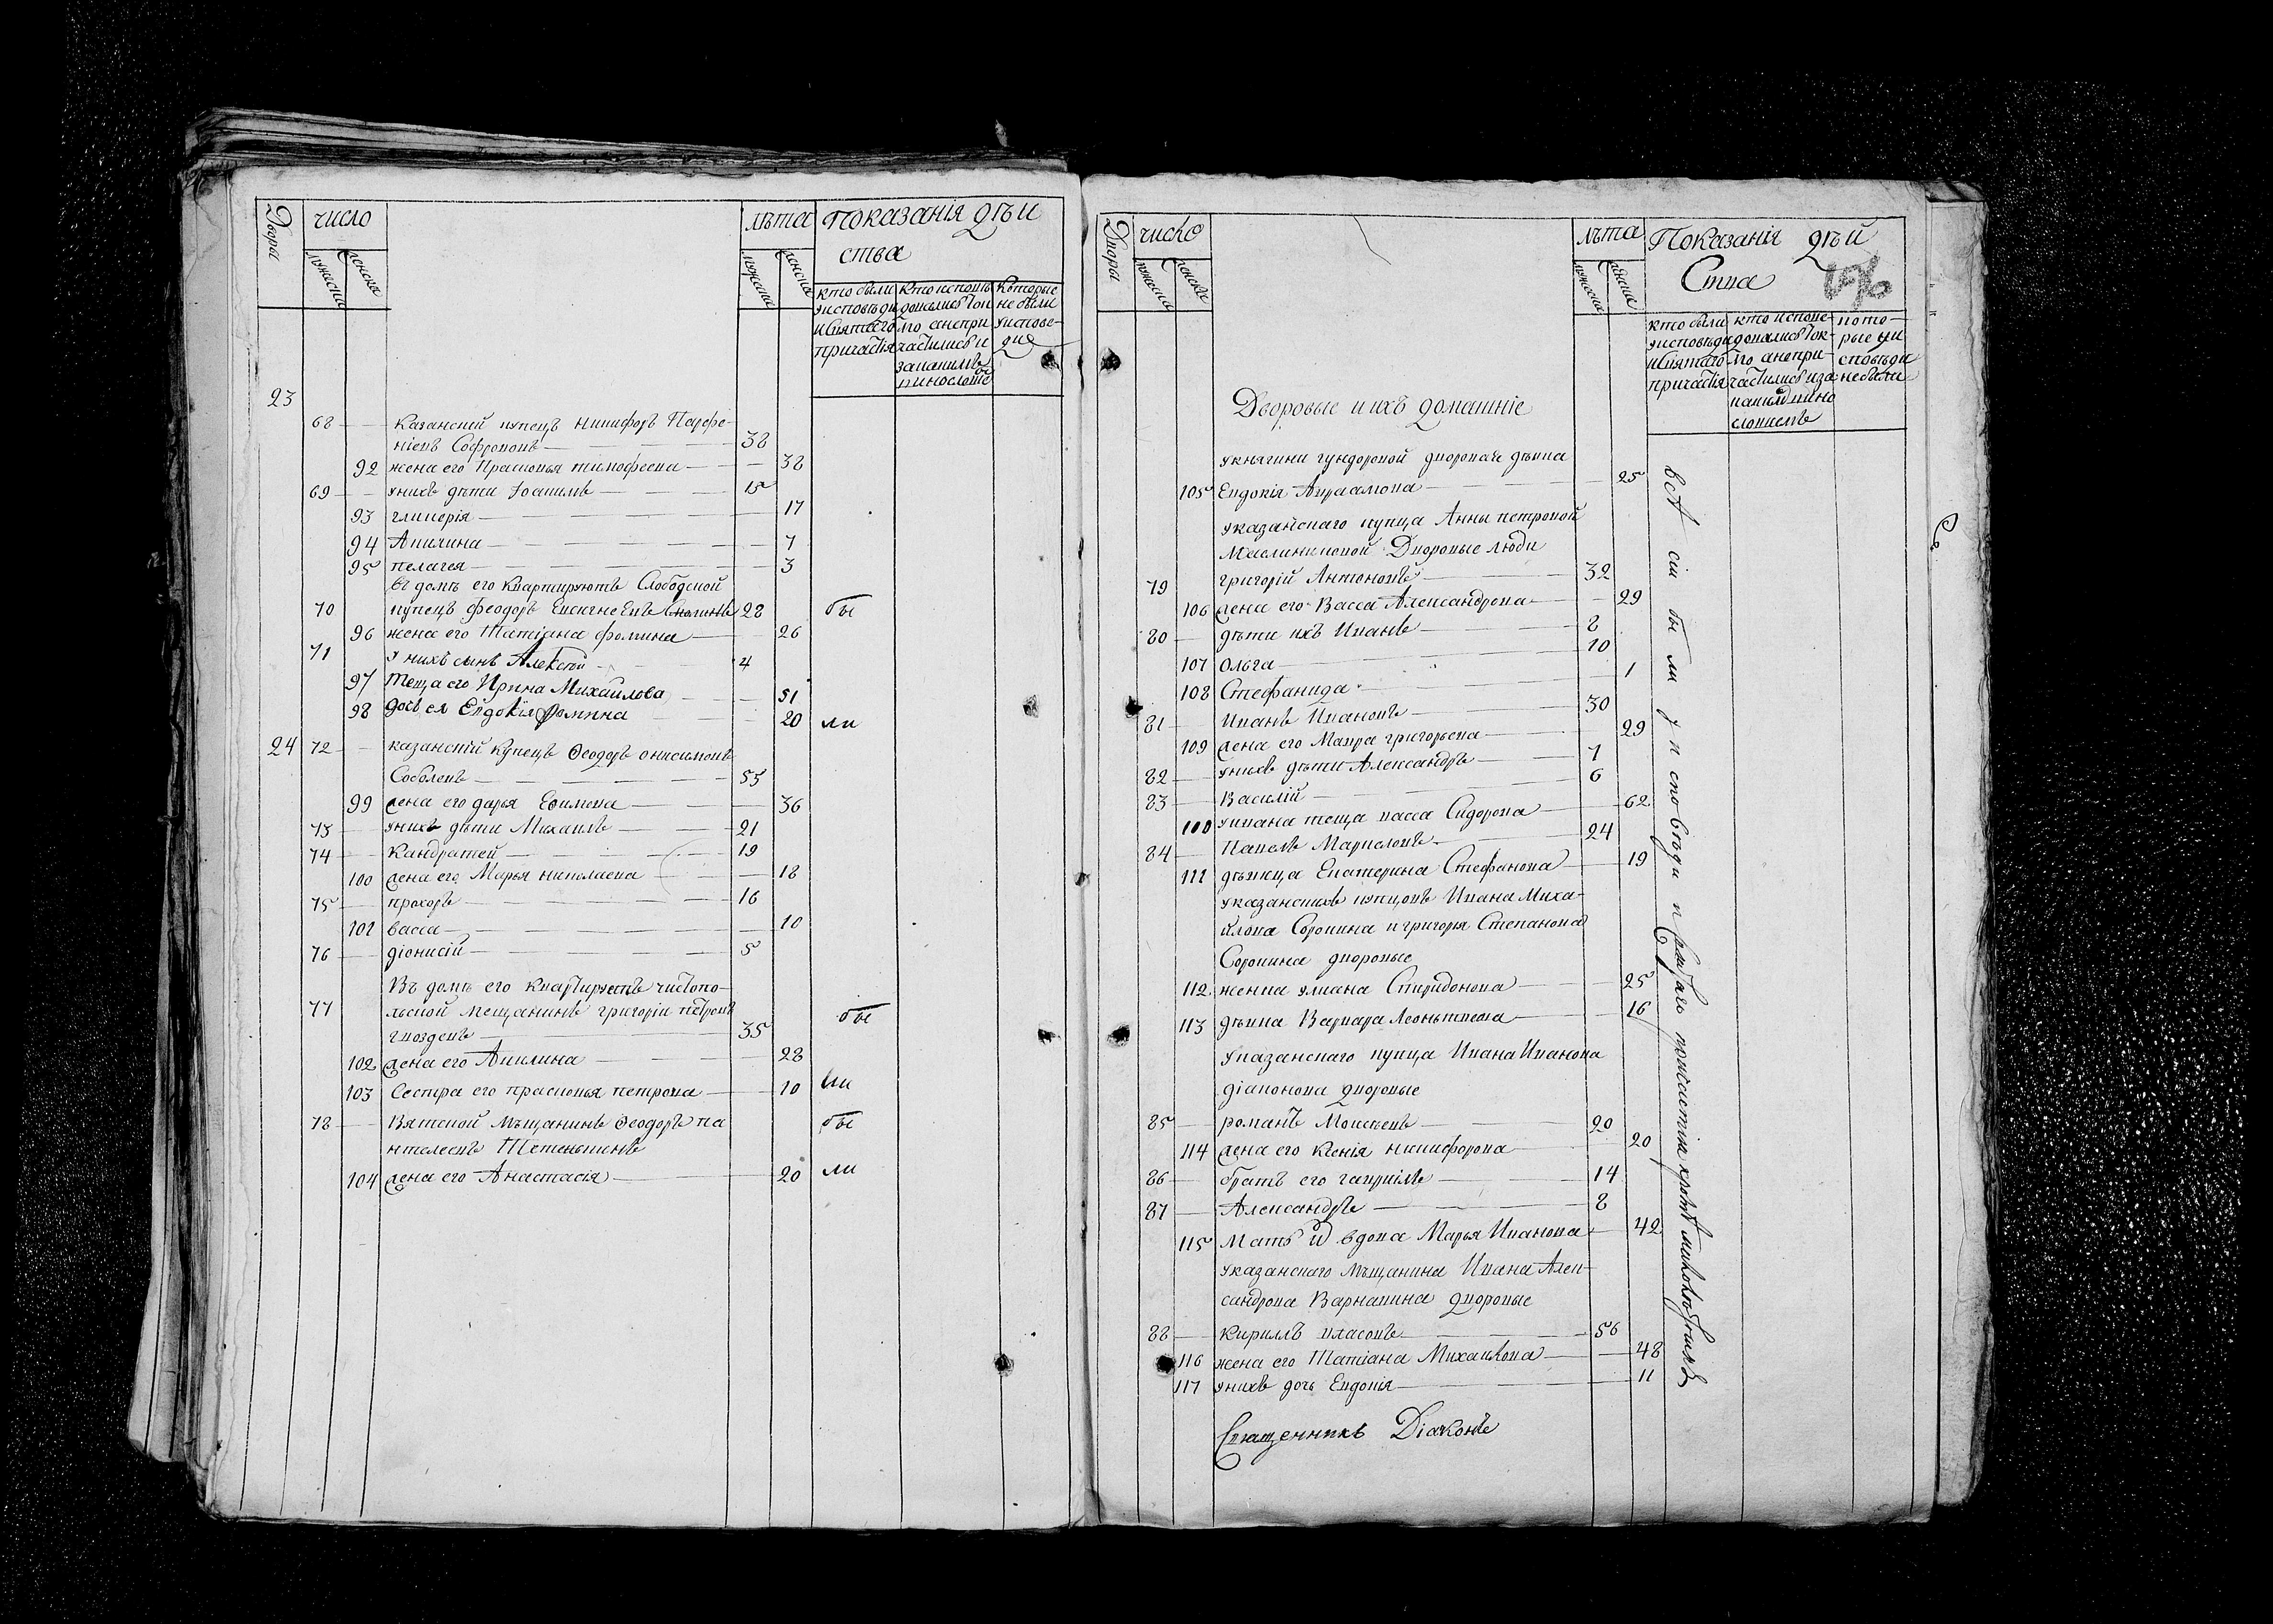 Двора
число
мужеска
женска
лѣта
мужеска
женска
Показанія дѣи
ства
кто были
у исповѣди
и святаго
причастія
кто исповѣ
довались ток
мо а не при
частились и
за какимъ
винословіе
которые
не были
у испове-
ди
23
68 Казанскій купецъ Никифоръ Парфе-
ніевъ Софроновъ 38
92 жена его Прасковья тимофеева 38
69 у нихъ дѣти Іоакимъ 15
93 гликерія 17
94 Акилина 7
95 пелагея 3
въ домѣ его квартируютъ Слободской
70 купецъ феодоръ Евсигнеевъ 28 бы
96 жена его Татіана фомина 26
71 у нихъ сынъ Алексѣй 4
97 Теща его Ирина Михаилова 51
98 дочь ея Евдокія фомина 20 ли
24 72 казанскій купецъ Ѳеодоръ онисимовъ
Соболевъ 55
99 жена его дарья Ефимова 36
73 у нихъ дѣти Михаилъ 21
74 Кандратей 19
100 жена его Марья николаева 18
75 прохоръ 16
101 васса 10
76 діонисій 5
Въ домѣ его квартируетъ чистопо-
77 льской мещанинъ григоріи петровъ бы
гвоздевъ 35
102 жена его Акилина 28
103 Сестра его прасковья петрова 10 ли
78 Вятской мѣщанинъ Ѳеодоръ па бы
нтелеевъ Тетенькинъ
104 жена его Анастасія 20 ли
Двора
число
мужеска
женска
лѣта
мужеска
женска
Показанія дѣй
Ства
кто были
у исповѣди
и святаго
причастія
кто испове-
довались ток-
мо а не при-
частились и за
какимъ вино
словіемъ
кото-
рые у и
сповѣди
не были
Дворовые и ихъ домашніе
у княгини гундоровой дворовая дѣвка
105 Евдокія Авраамова 25
у казанскаго купца Анны петровой
Масленниковой Дворовые люди
79 григорій Антоновъ 32
106 жена его Васса Александрова 29
80 дѣти ихъ Иванъ 8
107 Ольга 10
108 Стефанида 1
81 Иванъ Ивановъ 30
109 жена его Мавра григорьева 29
82 у нихъ дѣти Александръ 7
83 Василій 6
100 у ивана теща васса Сидорова 62
84 Павелъ Маркеловъ 24
111 дѣвица Екатерина Стефанова 19
у казанскихъ купцовъ Ивана Миха-
йлова Сорокина и григорія Степанова
Сорокина дворовые
112 женка улиана Спиридонова 25
113 дѣвка Варвара Леонтьева 16
у казанскаго купца Ивана Иванова
діаконова дворовые
85 романъ Моисеевъ 20
114 жена его Ксенія никифорова 20
86 братъ его гавріилъ 14
87 Александръ 8
115 Мать их вдова Марья Иванова 42
у казанскаго мѣщанина Ивана Алек-
сандрова Варнакина дворовые
88 Кириллъ власовъ 56
116 жена его Татіана Михайлова 48
117 у нихъ дочь Евдокія 11
Священникъ Діаконъ
всѣ сіи бы ли у и спо вѣди и святаго